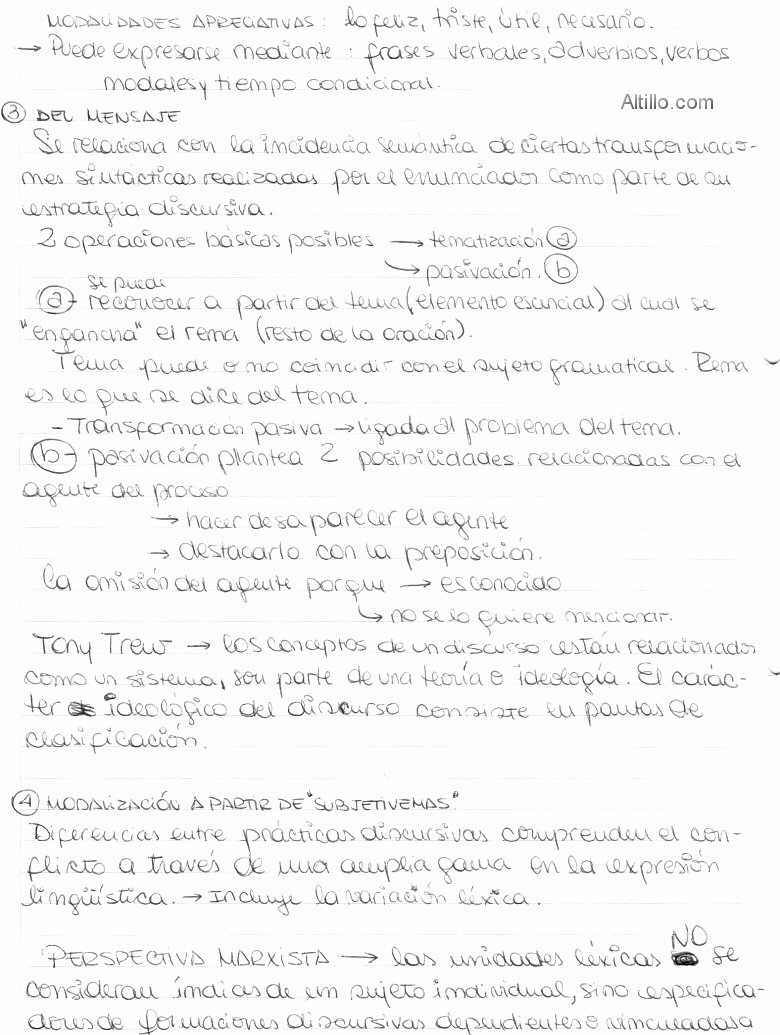 MODALIDADES APRECIATIVAS: lo feliz, triste, útil, necesario.
→ Puede expresarse mediante: frases verbales, adverbios, verbos
modales y tiempo condicional.
Altillo.com
③ DEL MENSAJE
Se relaciona con la incidencia semántica de ciertas transformacio-
nes sintácticas realizadas por el enunciador como parte de su
estrategia discursiva.
2 operaciones básicas posibles → tematización ⓐ
↳ pasivación. ⓑ
se puede
ⓐ- reconocer a partir del tema (elemento esencial) al cual se
"engancha" el rema (resto de la oración).
Tema puede o no coincidir con el sujeto gramatical. Rema
es lo que se dice del tema.
- Transformación pasiva → ligada al problema del tema.
ⓑ- pasivación plantea 2 posibilidades relacionadas con el
agente del proceso
→ hacer desaparecer el agente
→ destacarlo con la preposición.
La omisión del agente porque → es conocido
↳ no se lo quiere mencionar.
Tony Trew → los conceptos de un discurso están relacionados
como un sistema, son parte de una teoría o ideología. El carác-
ter ideológico del discurso consiste en pautas de
clasificación.
④ MODALIZACIÓN A PARTIR DE "SUBJETIVEMAS"
Diferencias entre prácticas discursivas comprenden el con-
flicto a través de una amplia gama en la expresión
lingüística. → Incluye la variación léxica.
PERSPECTIVA MARXISTA → las unidades léxicas NO se
consideran índices de un sujeto individual, sino especifica-
dores de formaciones discursivas dependientes o vinculadas a